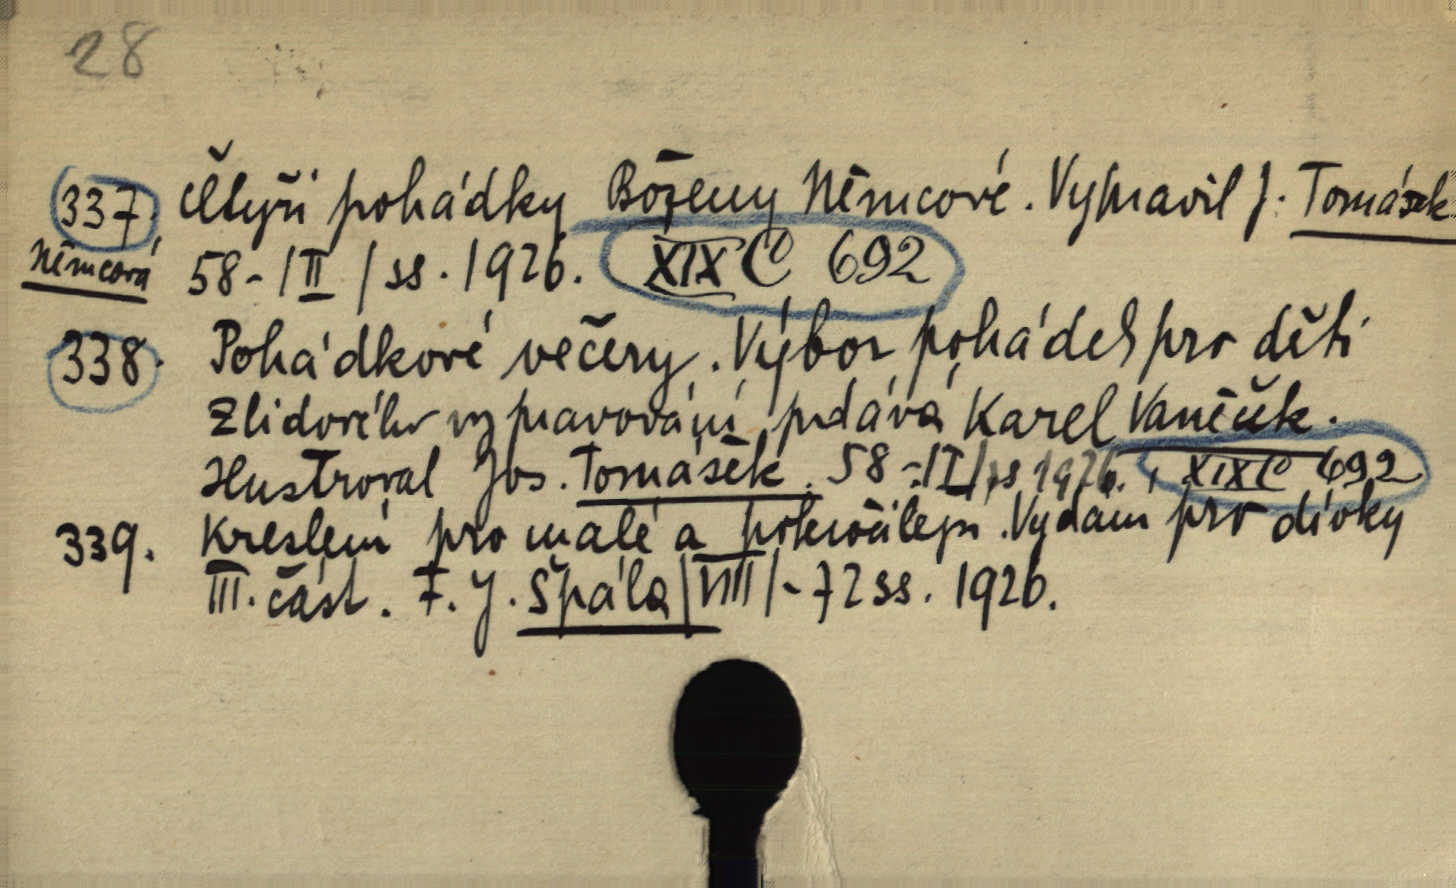 28
337. Čtyři pohádky Boženy Němcové. Vypravil J. Tomášek
Němcová 58-/II/ss. 1926. XIX C 692
338. Pohádkové večery. Výbor pohádek pro děti
z lidového vypravování podává Karel Vaníček.
Ilustroval Jos. Tomášek. 58-/I/ss 1926. XIX C 692
339. Kreslení pro malé a pokročilejší. Vydání pro dívky
III. část. F. J. Špála /VIII/-72 ss. 1926.